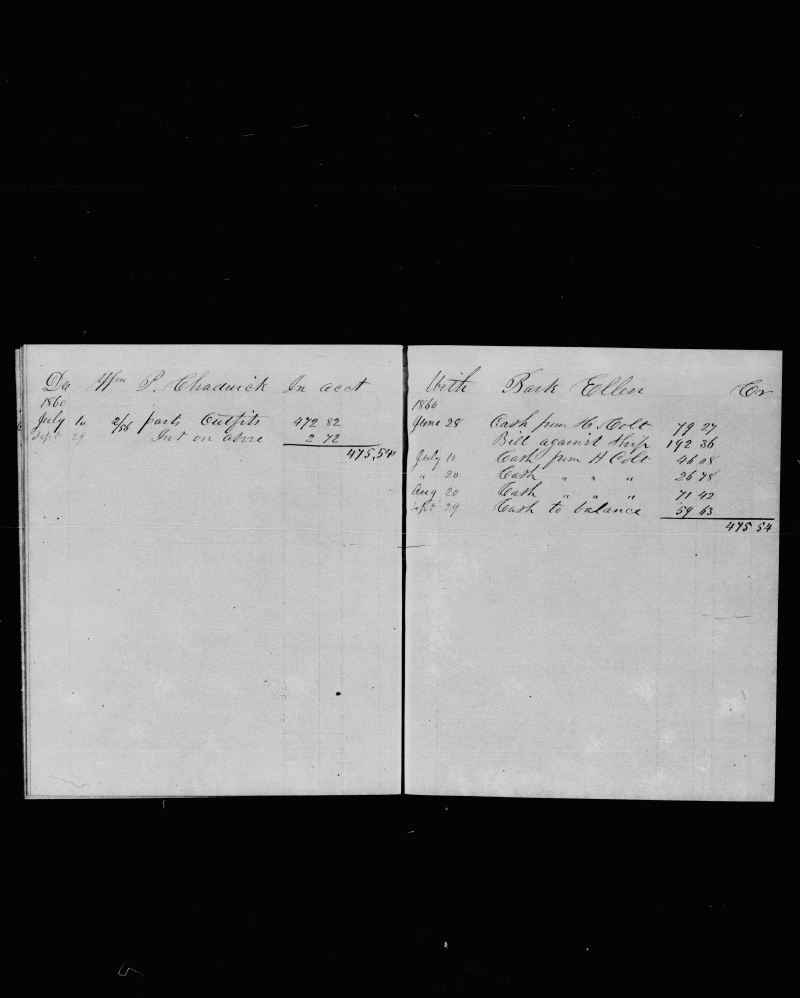 Dr Wm P. Chadwick In acct
1860
July 10 2/56 parts Outfits 472 82
Sept 29 Int on above 2 72
475,54
With Bark Ellen Cr
1860
June 28 Cash from H. Colt 79 27
Bill against Ship 192 36
July 10 Cash from H Colt 46 08
" 20 Cash " " " 26 78
Aug 20 Cash " " " 71 42
Sept 29 Cash to balance 59 63
475 54